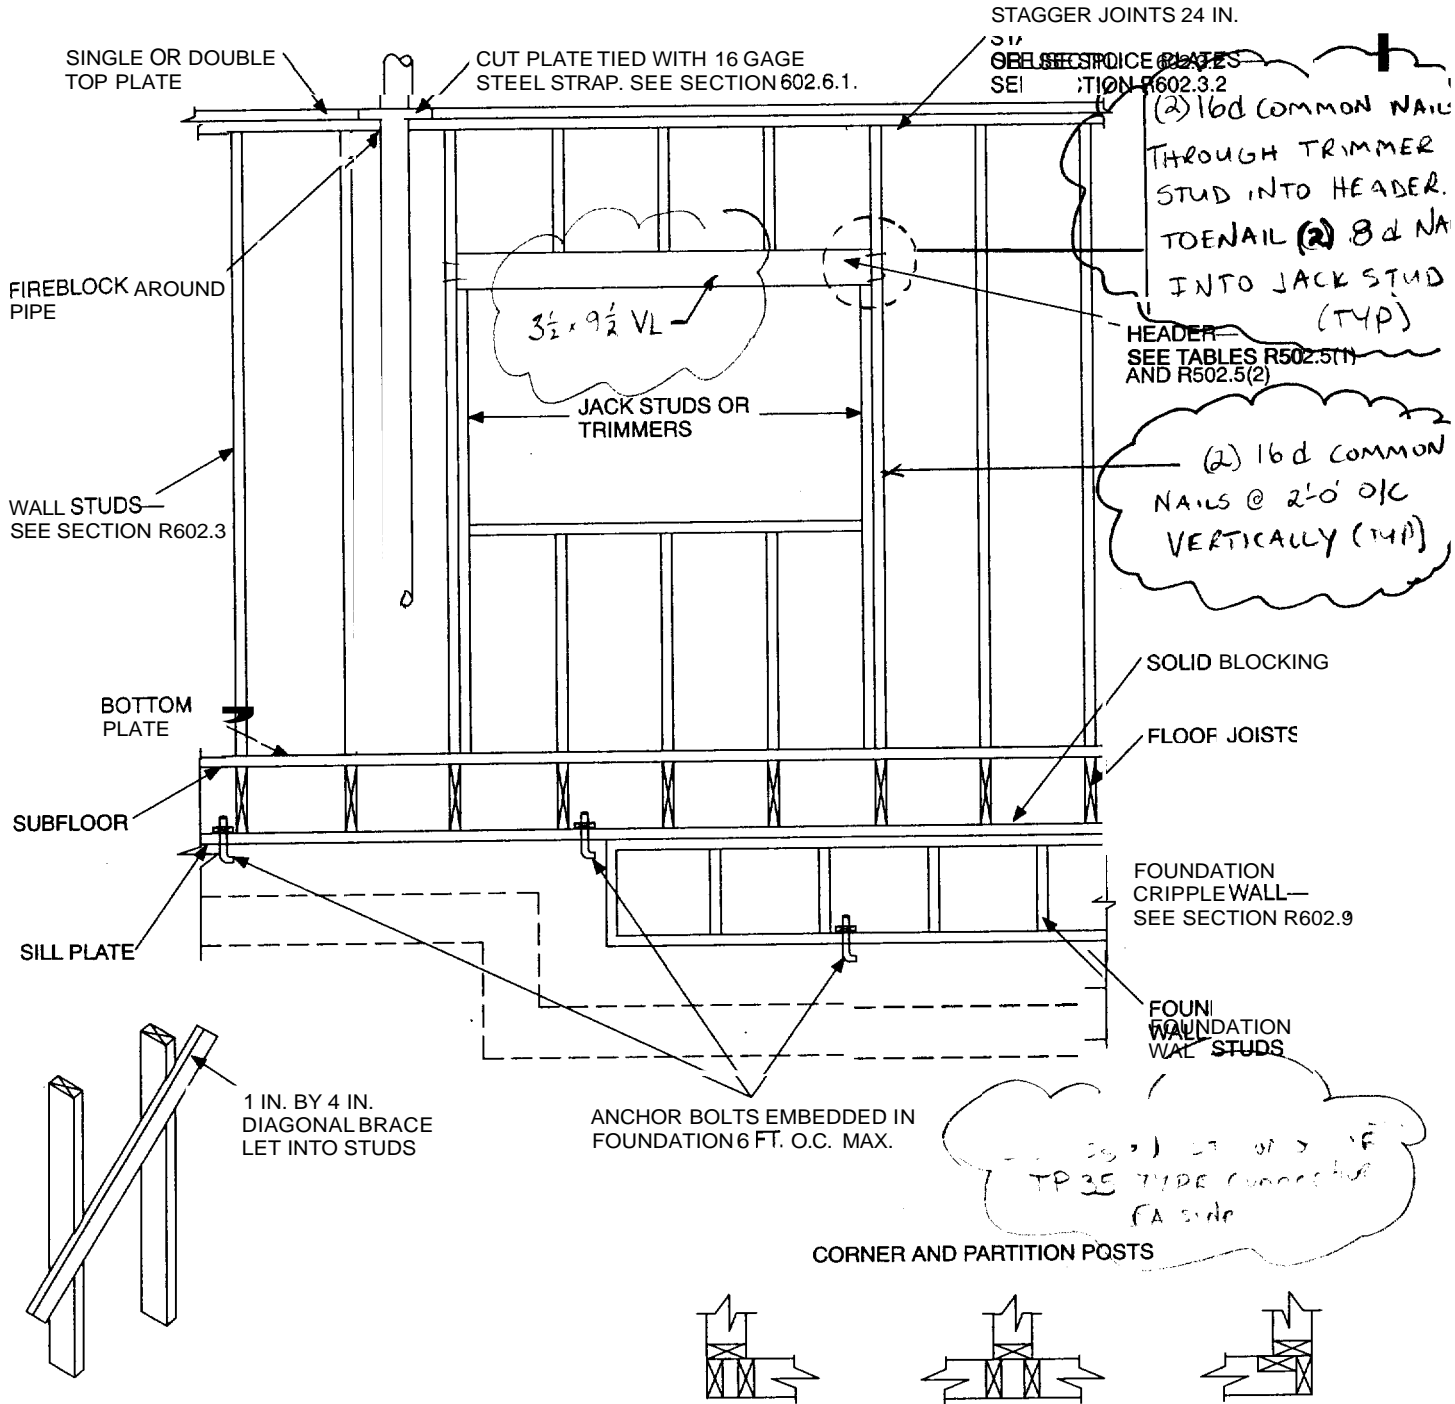 STAGGER JOINTS 24 IN.
SECTION R602.3.2
SINGLE OR DOUBLE
TOP PLATE
CUT PLATE TIED WITH 16 GAGE
STEEL STRAP. SEE SECTION 602.6.1.
(2) 16d COMMON NAILS
THROUGH TRIMMER
STUD INTO HEADER.
TOENAIL (2) 8d
INTO JACK STUD
(TYP)
FIREBLOCK AROUND
PIPE
3½ x 9½ VL
HEADER—
SEE TABLES R502.5(1)
AND R502.5(2)
JACK STUDS OR
TRIMMERS
(2) 16d COMMON
NAILS @ 2'-0" O/C
VERTICALLY (TYP)
WALL STUDS—
SEE SECTION R602.3
SOLID BLOCKING
BOTTOM
PLATE
FLOOF JOISTS
SUBFLOOR
FOUNDATION
CRIPPLE WALL—
SEE SECTION R602.9
SILL PLATE
FOUNDATION
WALL STUDS
1 IN. BY 4 IN.
DIAGONAL BRACE
LET INTO STUDS
ANCHOR BOLTS EMBEDDED IN
FOUNDATION 6 FT. O.C. MAX.
TP 35 TYPE
EA SIDE
CORNER AND PARTITION POSTS